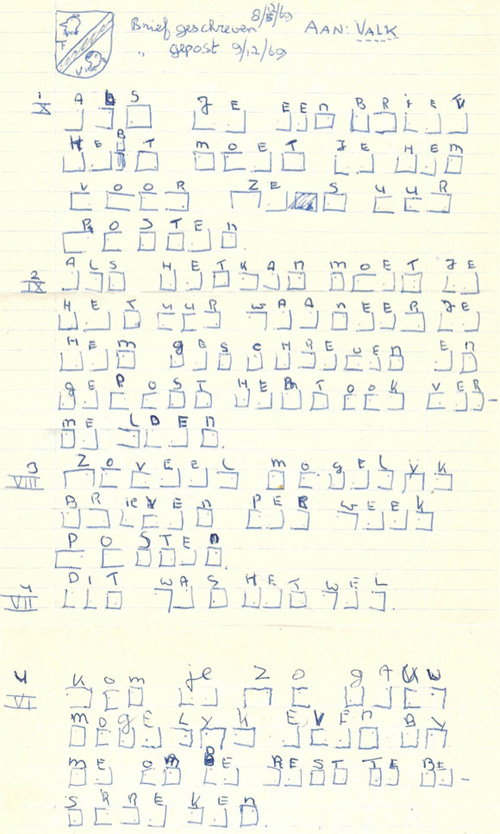 Brief geschreven 8/12/69 AAN: VALK
„ gepost 9/12/69
F
V
1 X ALS JE EEN BRIEF
HEBT MOET JE HEM
VOOR ZES UUR
POSTEN.
2 IX ALS HET KAN MOET JE
HET UUR WAANEER JE
HEM GESCHREUEN EN
GEPOST HEBT OOK VER-
MELDEN.
3 VIII ZOVEEL MOGELYK
BRIEVEN PER WEEK
POSTEN.
4 VII DIT WAS HET WEL.
4 VI KOM JE ZO GAUW
MOGELYK EVEN BY
ME OM DE REST TE BE-
SPREKEN.